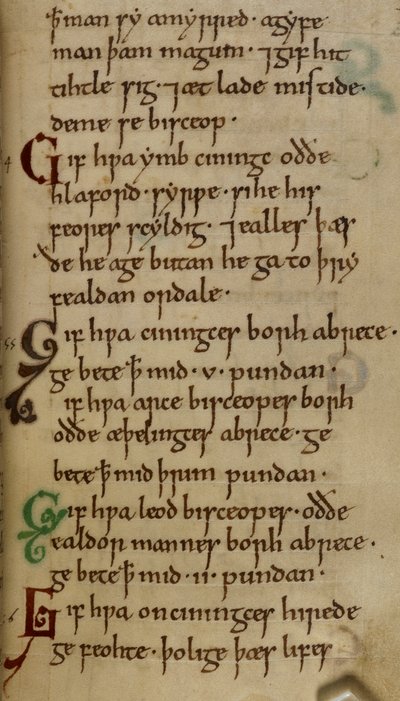 ꝥman sy amyrred· agyfe
man þam magum· ⁊gif hit
tihtle sig· ⁊æt lade mistide·
deme se bisceop·
Gif hƿa ymb cininge oððe
hlaford· syrƿe· sihe his
feores scyldig· ⁊ealles þæs
ðe he age butan he ga to þry
fealdan ordale·
Gif hƿa ciningces borh abrece·
ge bete ꝥ mid· v· pundan·
Gif hƿa arce bisceopes borh
oððe æþelinges abrece· ge
bete ꝥ mid þrim pundan·
Gif hƿa leod bisceopes· oððe
ealdor mannes borh abrece·
ge bete ꝥ mid· ii· pundan·
Gif hƿa on cininges hirede
ge feohte· þolige þæs lifes